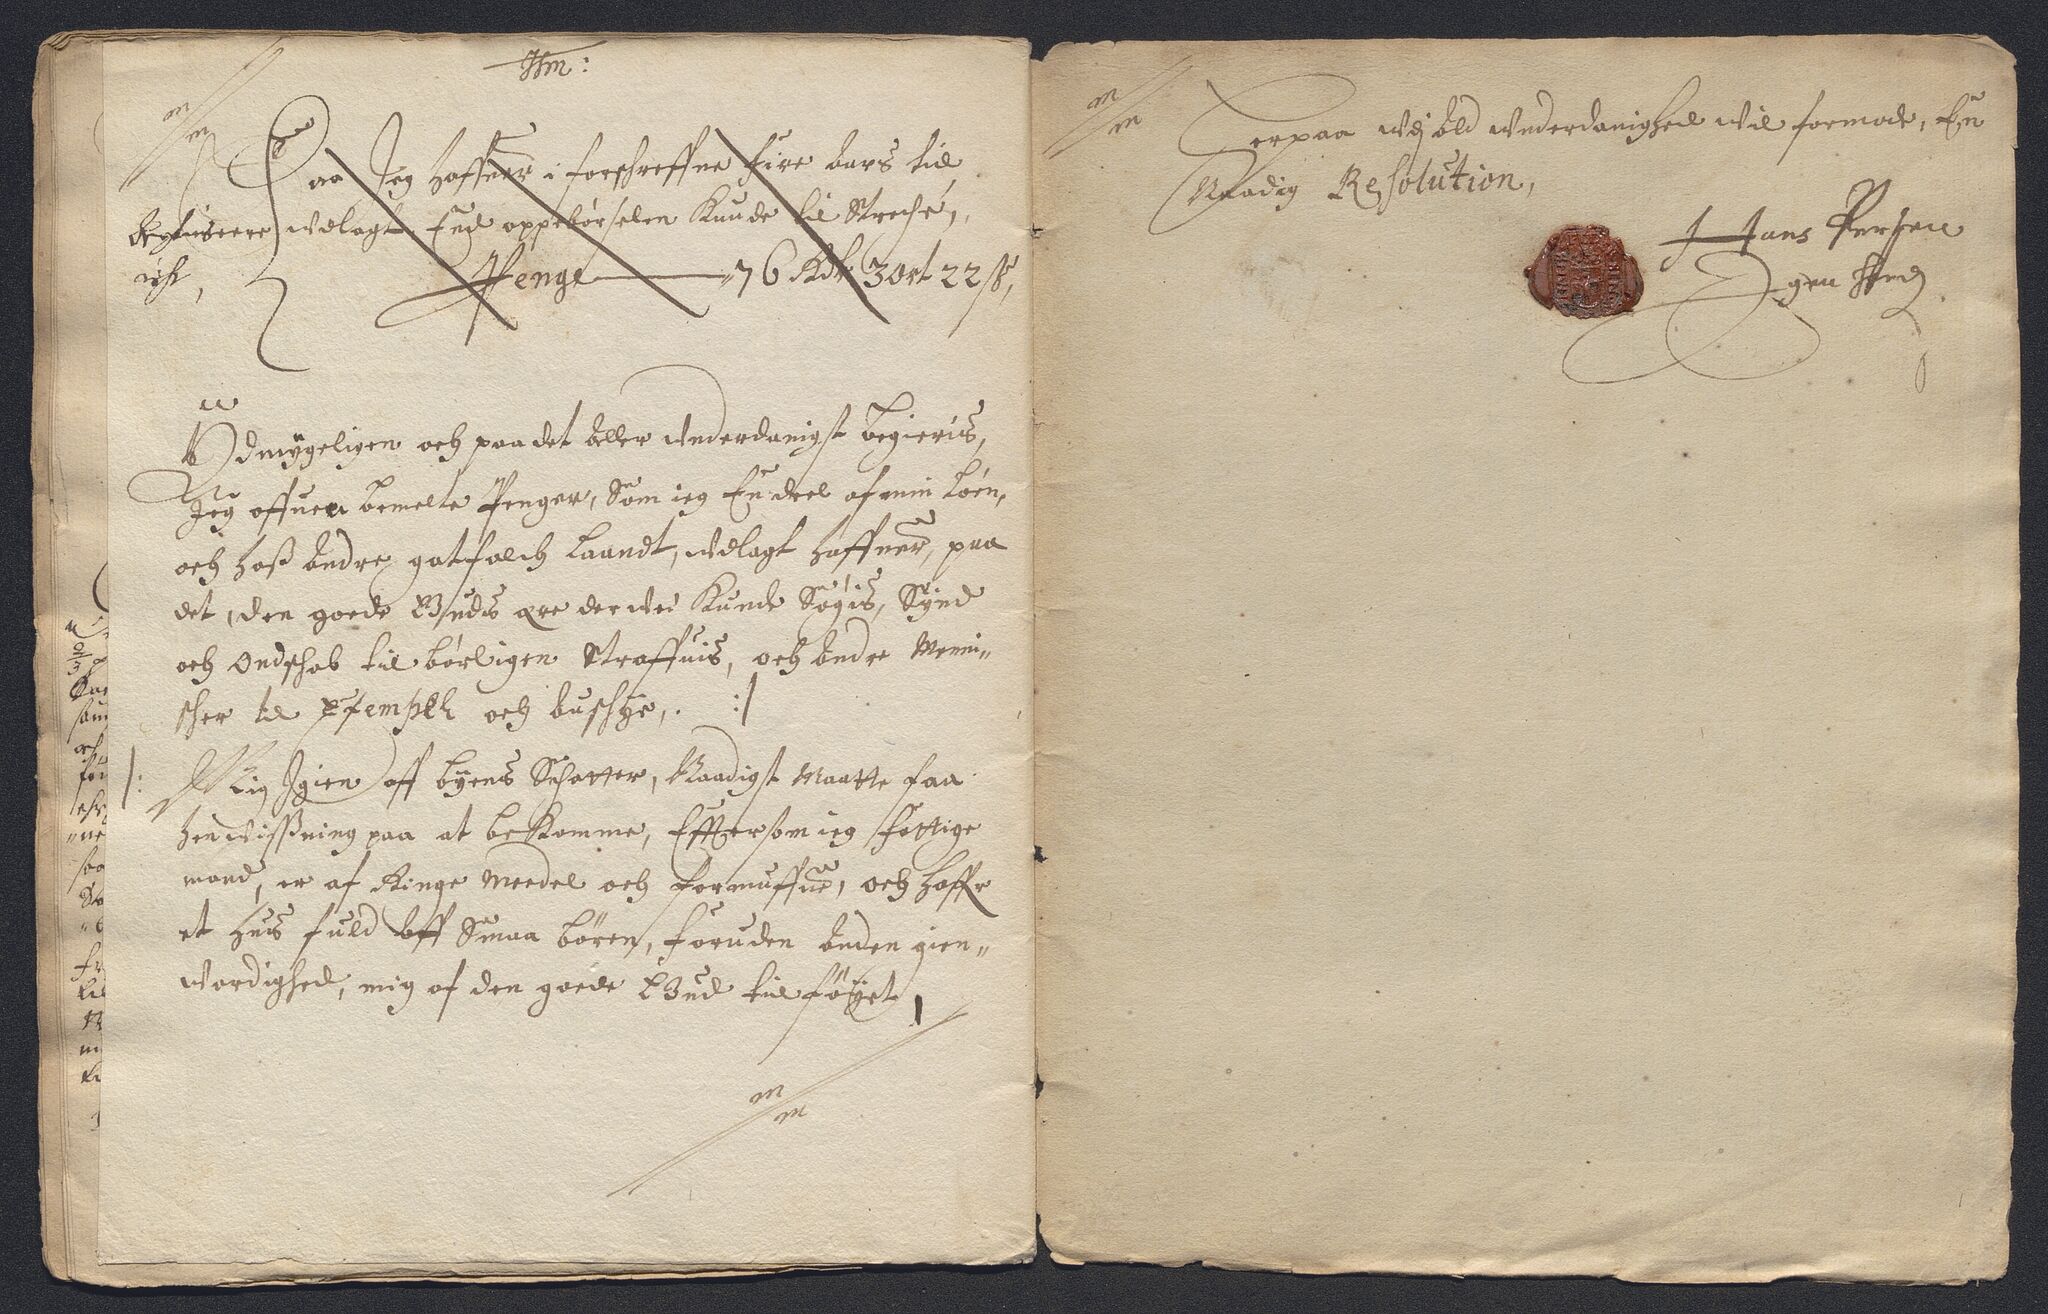 Jtm:
Saa Jeg haffuer i forschreffne Fire aars tid,
udlagt, End oppebørselen Kunde til Streche,
Penge 76 Rdr 3 Ort 22 ß,
Ydmygeligen och paa det aller underdanigst begieris,
Jeg offuen bemelte Penger, Som ieg En deel af min Løen,
och hoß andre gotfolch laandt, udlagt haffuer, paa
det, den goede Guds ære der ved Kunde Søgis, Synd
och Ondschab til børligen Straffuis, och andre Menni-
scher til Exempell och auschye,. :/
/: Mig Jgien aff byens Schatter, Naadigst Maatte faa
henwißning paa at bekomme, Effttersom ieg fattige
mand, er af Ringe Meedel och formuffue, och haffr
et huus fuld aff Smaa børen, foruden anden gien-
vordighed, mig af den goede Gud tilføyet,
Herpaa udj ald underdanighed vil formode, En
Naadig Resolution,
Hans Persen
Egen hand